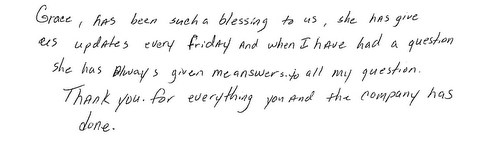 Grace, has been such a blessing to us, she has give
us updates every friday and when I have had a question
she has Always given me answers.to all my question.
Thank you. for everything you and the company has
done.